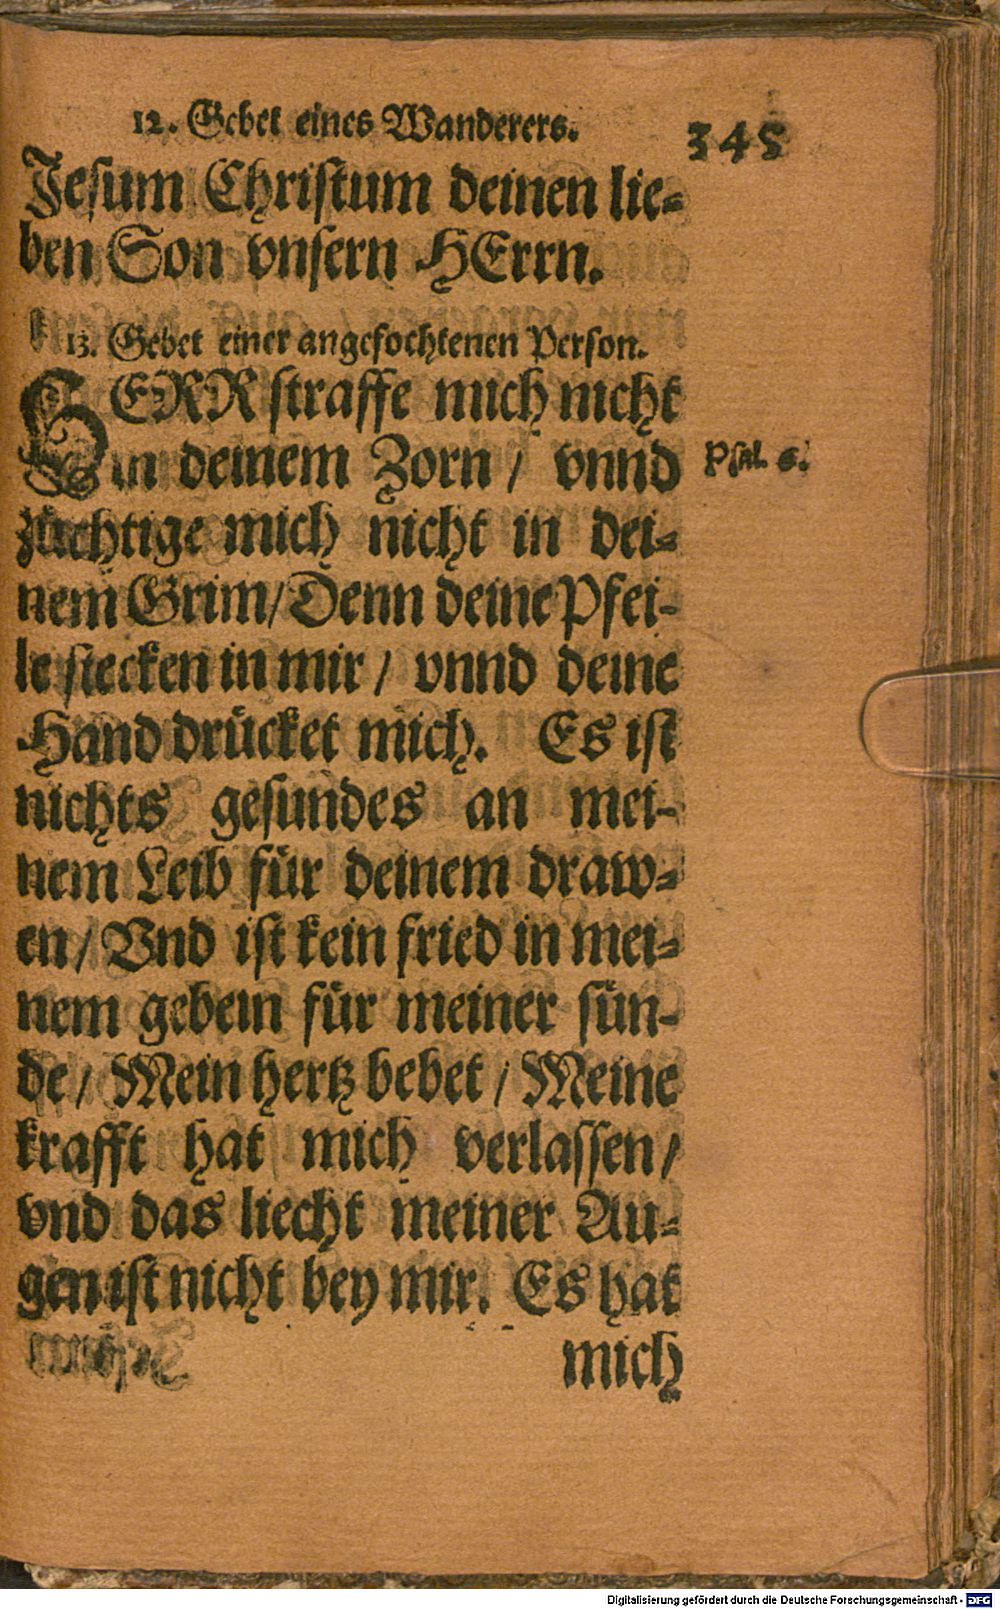 12. Gebet eines Wanderers. 345
Jesum Christum deinen lie-
ben Son vnsern HErrn.
13. Gebet einer angefochtenen Person.
HERR straffe mich nicht
in deinem Zorn / vnnd Psal. 6.
züchtige mich nicht in dei-
nem Grim/ Denn deine Pfei-
le stecken in mir / vnnd deine
Hand drücket mich. Es ist
nichts gesundes an mei-
nem Leib für deinem draw-
en / Vnd ist kein fried in mei-
nem gebein für meiner sün-
de / Mein hertz bebet / Meine
krafft hat mich verlassen /
vnd das liecht meiner Au-
gen ist nicht bey mir. Es hat
mich
Digitalisierung gefördert durch die Deutsche Forschungsgemeinschaft - DFG